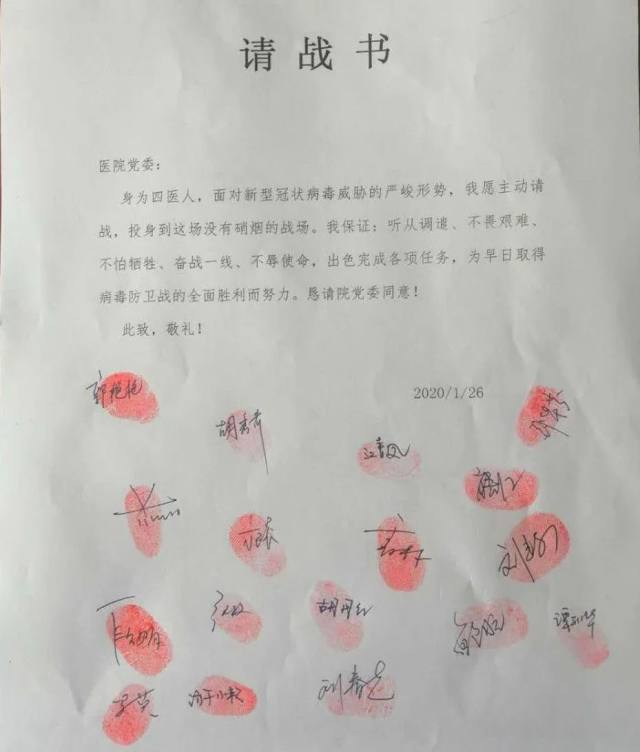 请战书
医院党委：
身为四医人，面对新型冠状病毒威胁的严峻形势，我愿主动请
战，投身到这场没有硝烟的战场。我保证：听从调遣、不畏艰难、
不怕牺牲、奋战一线、不辱使命，出色完成各项任务，为早日取得
病毒防卫战的全面胜利而努力。恳请院党委同意！
此致，敬礼！
2020/1/26